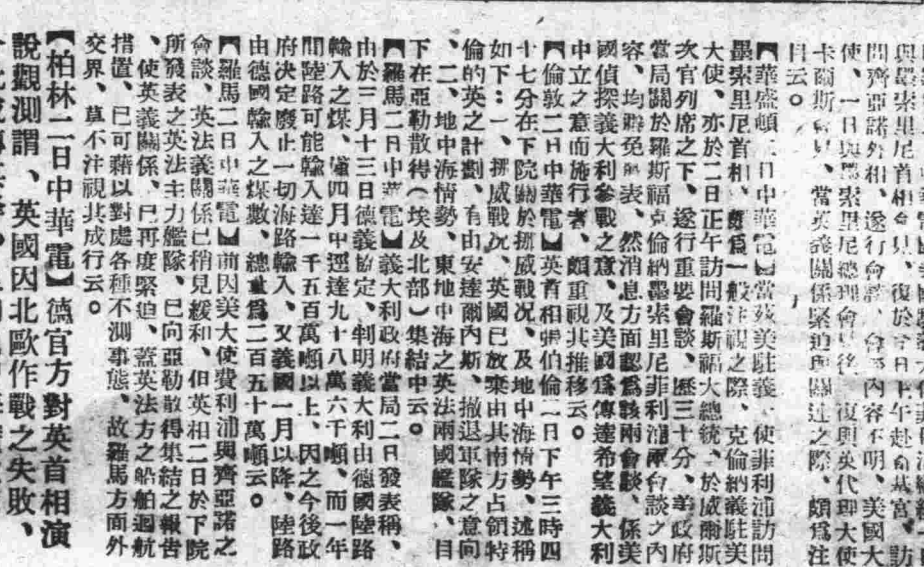 與墨索里尼首相會見、復於今日上午赴
問齊亞諾外相、遂行會談、會談內容不明、美國大
使、一日與墨索里尼總理會見後、復與英代理大使
卡爾斯會見、當英義關係緊迫與關連之際、頗爲注
目云。
【華盛頓二日中華電】當茲美駐義大使菲利浦訪問
墨索里尼首相、頗爲一般注視之際、克倫納義駐美
大使、亦於二日正午訪問羅斯福大總統、於威爾斯
次官列席之下、遂行重要會談、歷三十分、美政府
當局關於羅斯福克倫納墨索里尼菲利浦兩會談之內
容、均避免發表、然消息方面認爲該兩會談、係美
國偵探義大利參戰之意、及美國爲傳達希望義大利
中立之意而施行者、頗重視其推移云。
【倫敦二日中華電】英首相張伯倫二日下午三時四
十七分在下院關於挪威戰况、及地中海情勢、述稱
如下：一、挪威戰况、英國已放棄由其南方占領特
倫的英之計劃、有由安達爾內斯、撤退軍隊之意向
、二、地中海情勢、東地中海之英法兩國艦隊、目
下在亞勒散得（埃及北部）集結中云。
【羅馬二日中華電】義大利政府當局二日發表稱、
由於三月十三日德義協定、判明義大利由德國陸路
輸入之煤、僅四月中逕達九十八萬六千噸、而一年
間陸路可能輸入達一千五百萬噸以上、因之今後政
府决定廢止一切海路輸入、又義國一月以降、陸路
由德國輸入之煤數、總量爲二百五十萬噸云。
【羅馬二日中華電】前因美大使費利浦與齊亞諾之
會談、英法義關係已稍見緩和、但英相二日於下院
所發表之英法主力艦隊、已向亞勒散得集結之報告
、使英義關係、已再度緊迫、蓋英法方之船舶迴航
措置、已可藉以對處各種不測事態、故羅馬方面外
交界、莫不注視其成行云。
【柏林二日中華電】德官方對英首相演
說觀測謂、英國因北歐作戰之失敗、